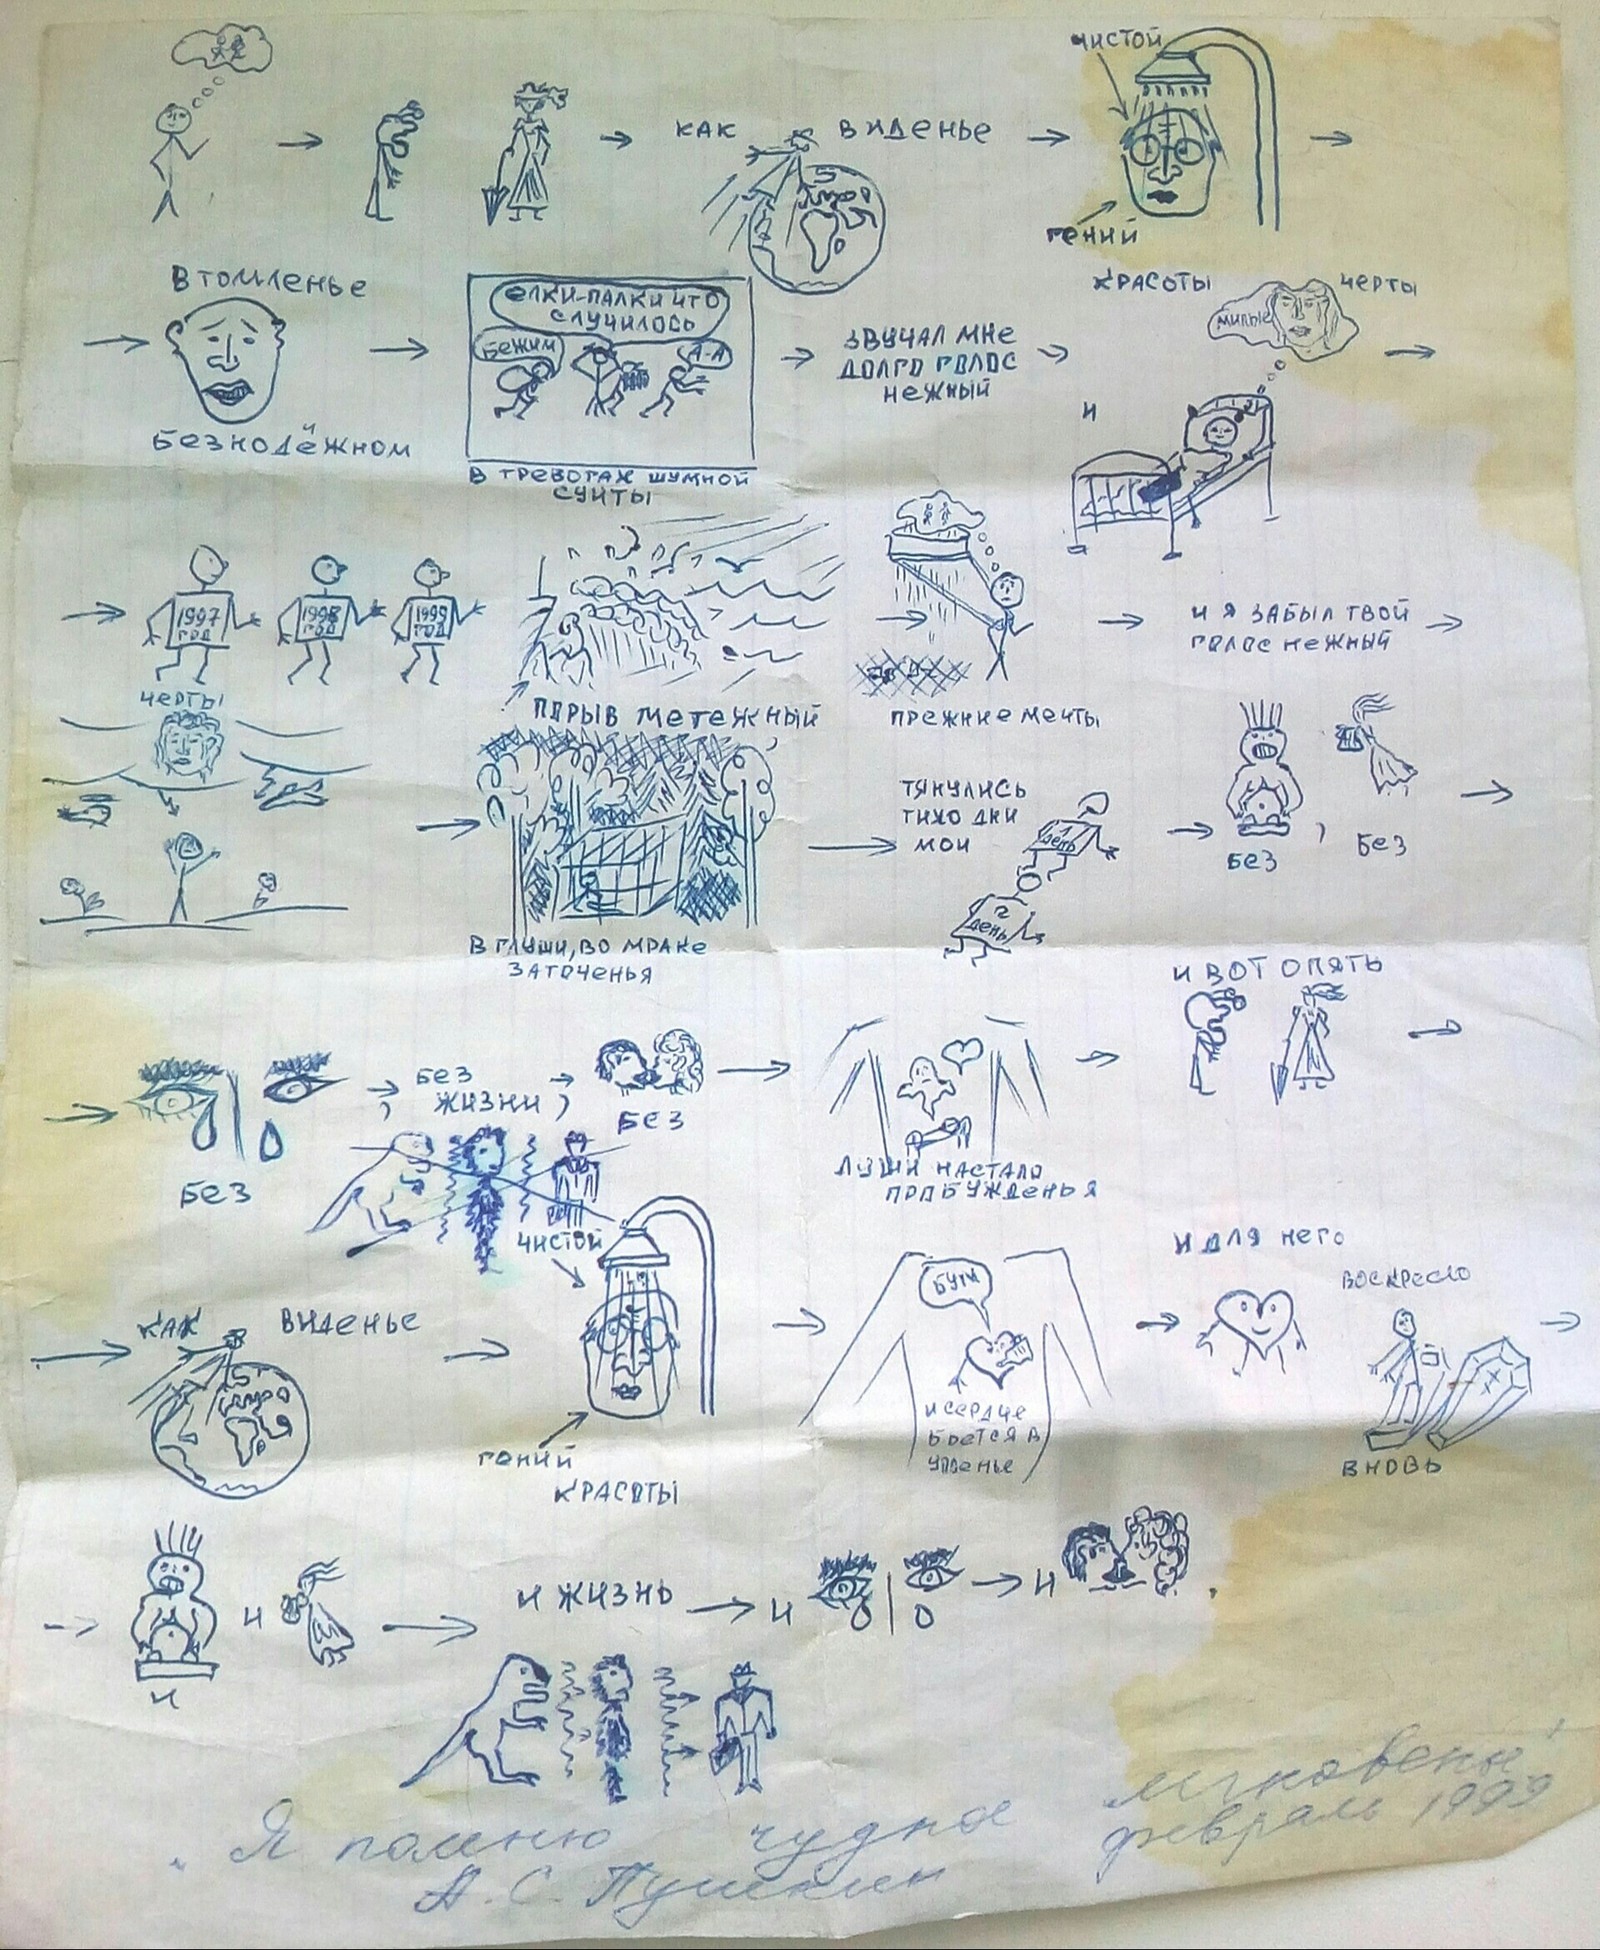 чистой
как виденье
гений
красоты
В томленье
безнодёжном
ёлки-палки что
случилось
бежим
А-А
в тревогах шумной
суиты
звучал мне
долго голос
нежный
милые
черты
и
1997
год
1998
год
1999
год
порыв метежный
прежние мечты
и я забыл твой
голос нежный
черты
в глуши, во мраке
заточенья
тянулись
тихо дни
мои
1
день
2
день
без, без
без
без
жизни,
без
Души настало
пробужденья
и вот опять
как виденье
чистой
гений
красоты
и сердце
бьется в
упоенье
и для него
воскресло
вновь
и
и
и жизнь
и
и
"Я помню чудное мгновенье"
А. С. Пушкин
февраль 1999